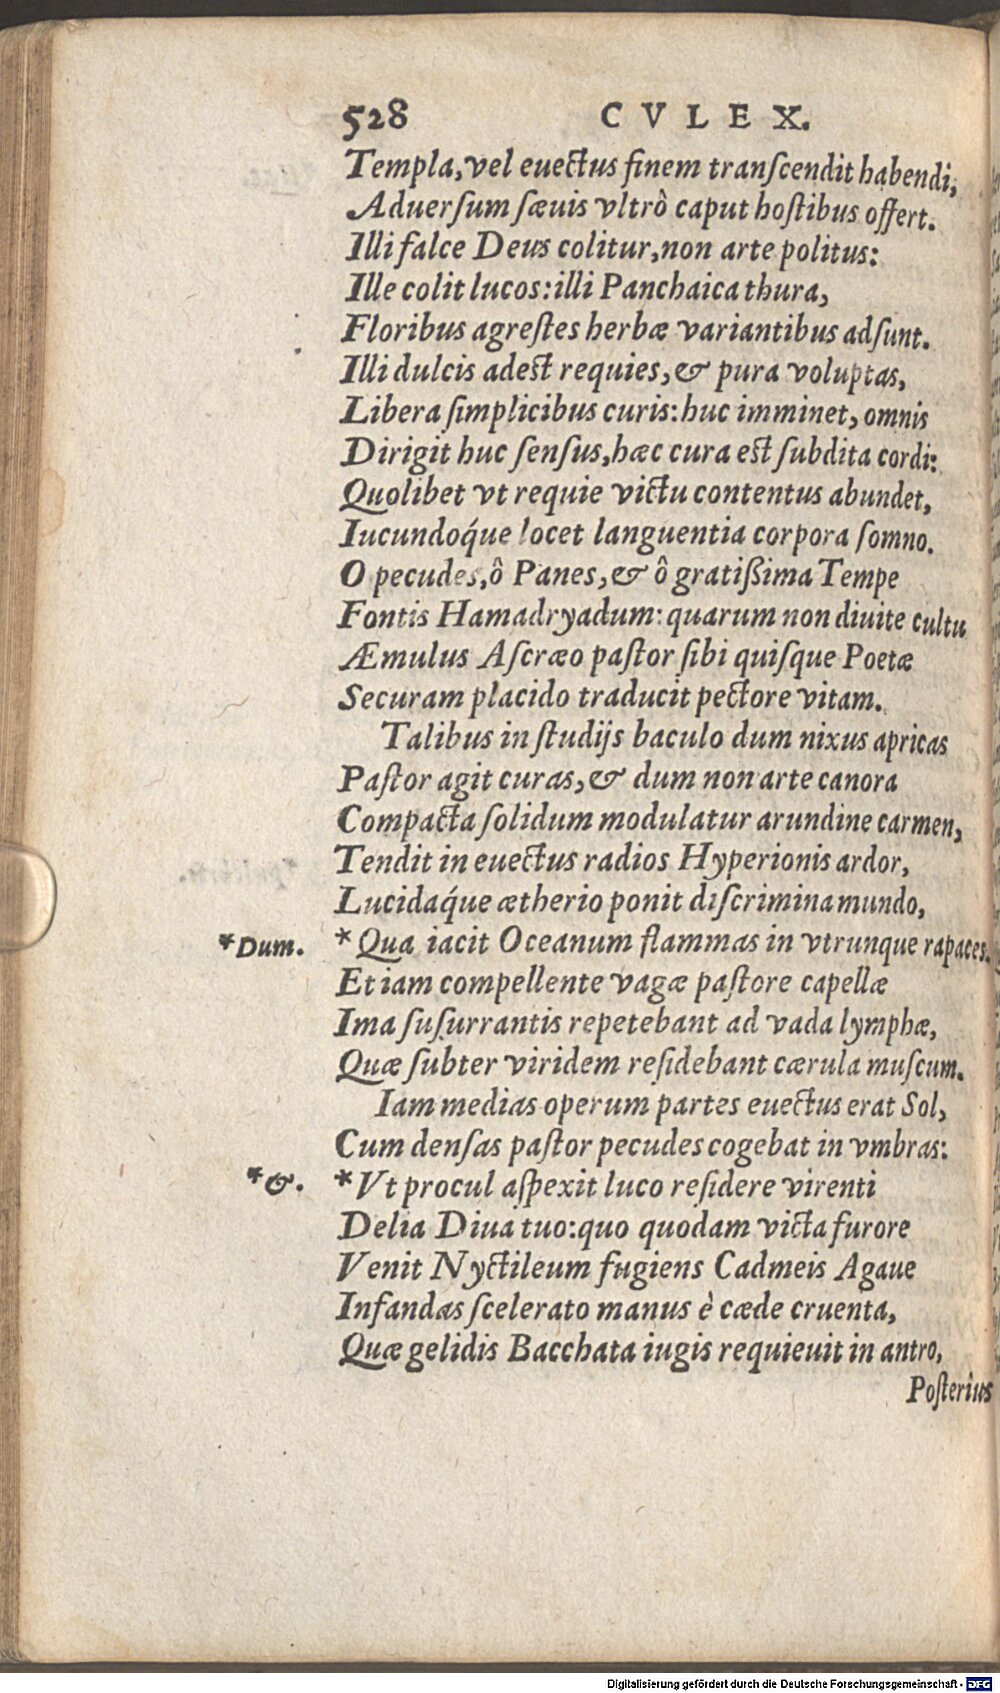 528 CVLEX.
Templa, vel euectus finem tranſcendit habendi,
Aduerſum ſæuis vltrò caput hoſtibus offert.
Illi falce Deus colitur, non arte politus:
Ille colit lucos: illi Panchaica thura,
Floribus agreſtes herbæ variantibus adſunt.
Illi dulcis adest requies, & pura voluptas,
Libera ſimplicibus curis: huc imminet, omnis
Dirigit huc ſenſus, hæc cura est ſubdita cordi:
Quolibet vt requie victu contentus abundet,
Iucundoq́ue locet languentia corpora ſomno.
O pecudes, ô Panes, & ô gratißima Tempe
Fontis Hamadryadum: quarum non diuite cultu
Æmulus Aſcræo paſtor ſibi quiſque Poetæ
Securam placido traducit pectore vitam.
Talibus in ſtudijs baculo dum nixus apricas
Paſtor agit curas, & dum non arte canora
Compacta ſolidum modulatur arundine carmen,
Tendit in euectus radios Hyperionis ardor,
Lucidaq́ue ætherio ponit diſcrimina mundo,
*Dum. *Qua iacit Oceanum flammas in vtrunque rapaces.
Et iam compellente vagæ paſtore capellæ
Ima ſuſurrantis repetebant ad vada lymphæ,
Quæ ſubter viridem reſidebant cærula muſcum.
Iam medias operum partes euectus erat Sol,
Cum denſas paſtor pecudes cogebat in vmbras:
*&. *Vt procul aſpexit luco reſidere virenti
Delia Diua tuo: quo quodam victa furore
Venit Nyctileum fugiens Cadmeis Agaue
Infandas ſcelerato manus è cæde cruenta,
Quæ gelidis Bacchata iugis requieuit in antro,
Poſterius
Digitalisierung gefördert durch die Deutsche Forschungsgemeinschaft - DFG